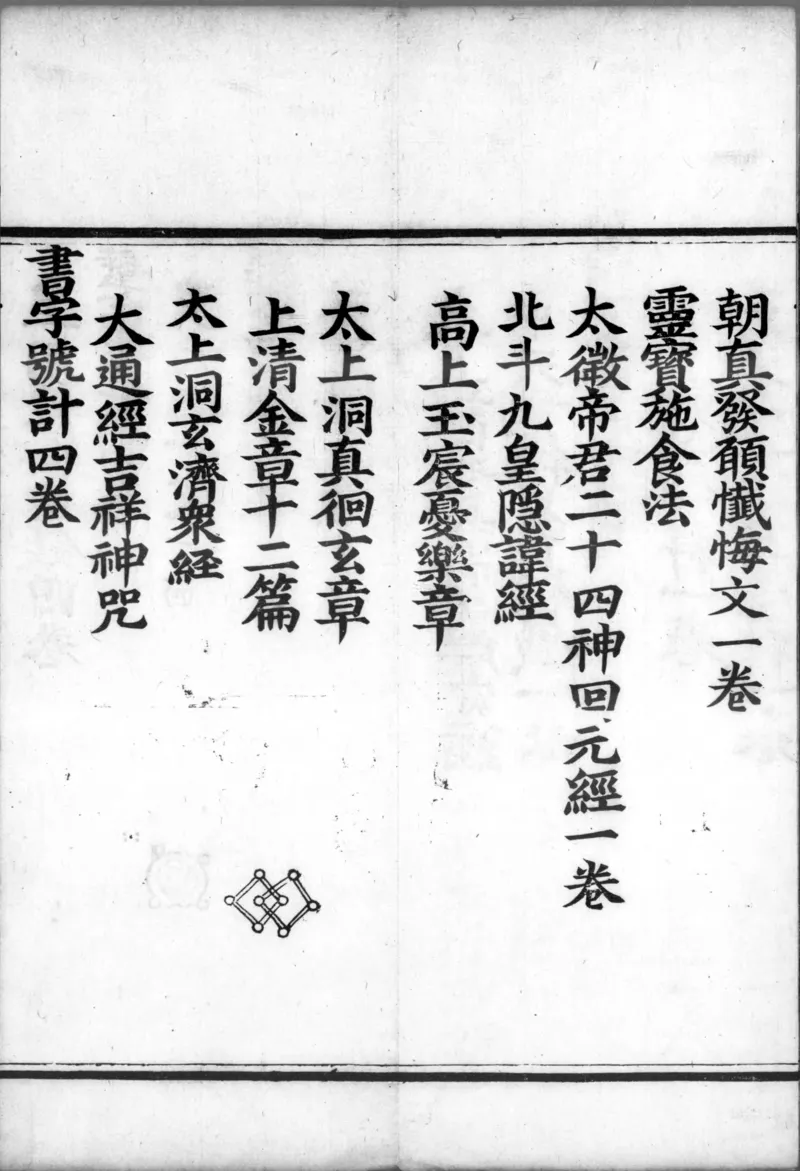 朝真發願懺悔文一卷
靈寶施食法
太微帝君二十四神回元經一卷
北斗九皇隱諱經
高上玉宸憂樂章
太上洞真徊玄章
上清金章十二篇
太上洞玄濟衆経
大通經吉祥神咒
書字號計四卷